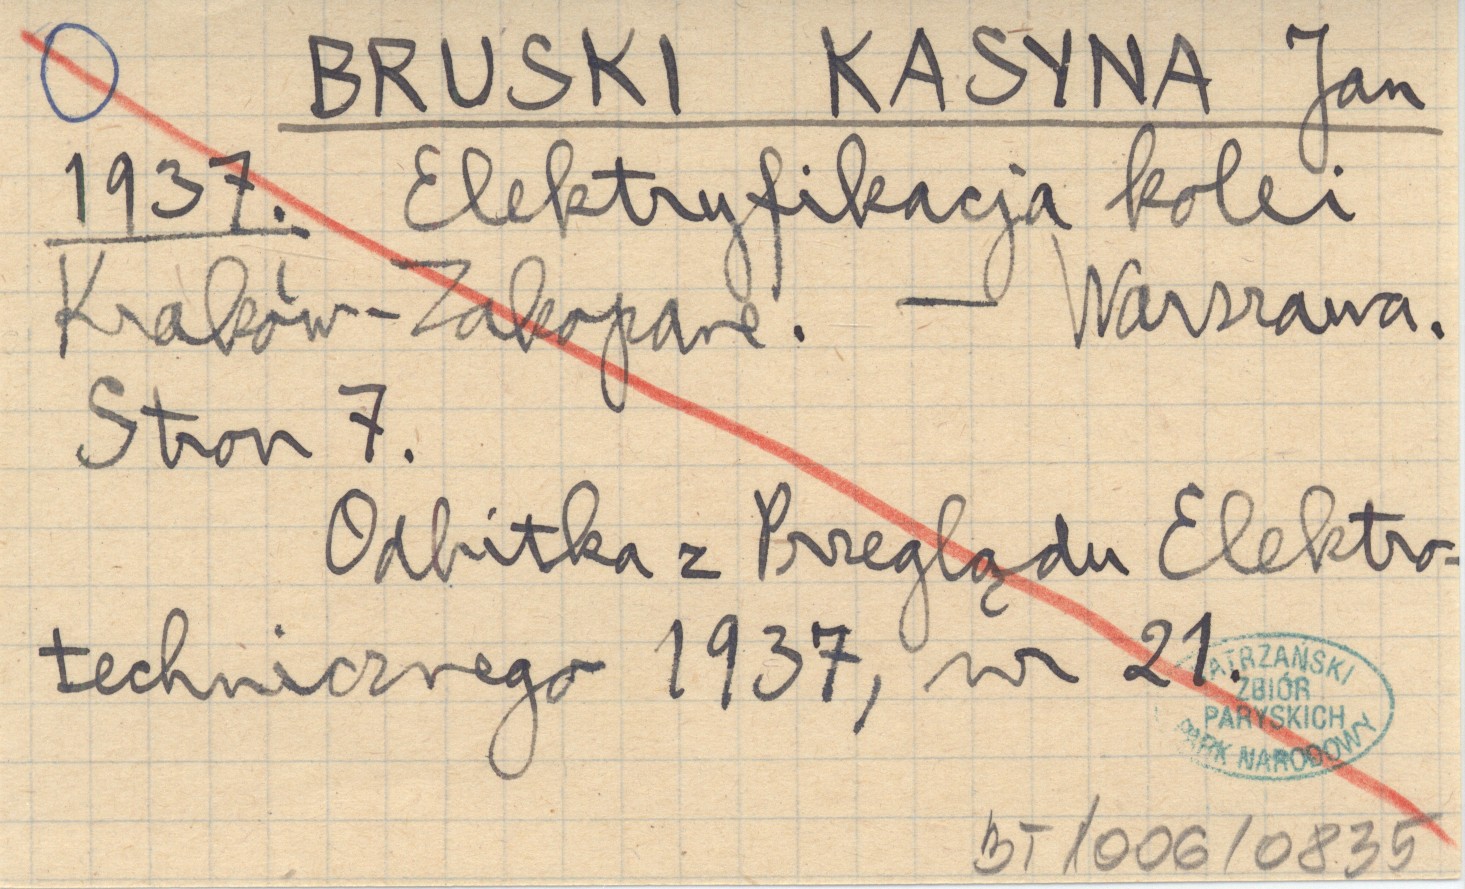 BRUSKI KASYNA Jan
1937. Elektryfikacja kolei
Kraków-Zakopane. — Warszawa.
Stron 7.
Odbitka z Przeglądu Elektro-
technicznego 1937, nr 21.
TATRZAŃSKI
ZBIÓR
PARYSKICH
PARK NARODOWY
BT/006/0835